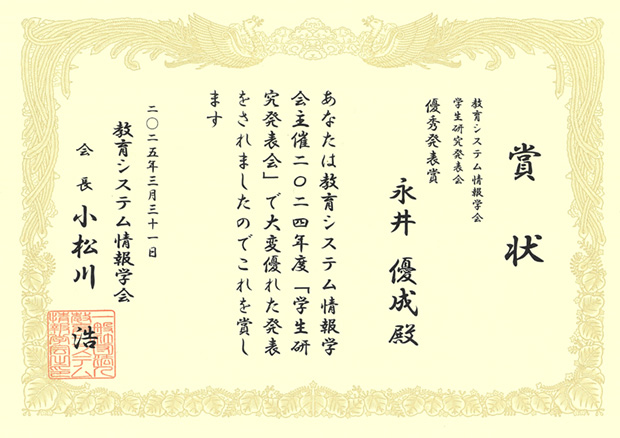 賞状
教育システム情報学会
学生研究発表会
優秀発表賞
永井 優成殿
あなたは教育システム情報学
会主催二〇二四年度「学生研
究発表会」で大変優れた発表
をされましたのでこれを賞し
ます
二〇二五年三月三十一日
教育システム情報学会
会長 小松川 浩